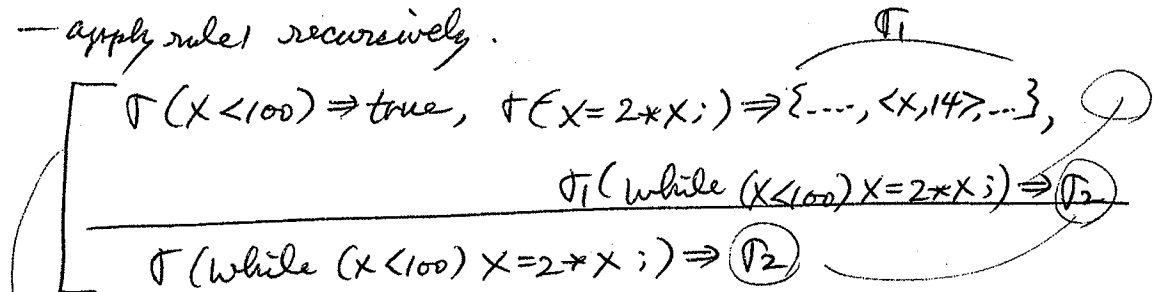 — apply rule1 recursively.
σ1
σ(x<100) ⇒ true, σ(x=2*x;) ⇒ {...., <x,14>,...},
σ1(while (x<100) x=2*x;) ⇒ σ2
σ(while (x<100) x=2*x;) ⇒ σ2